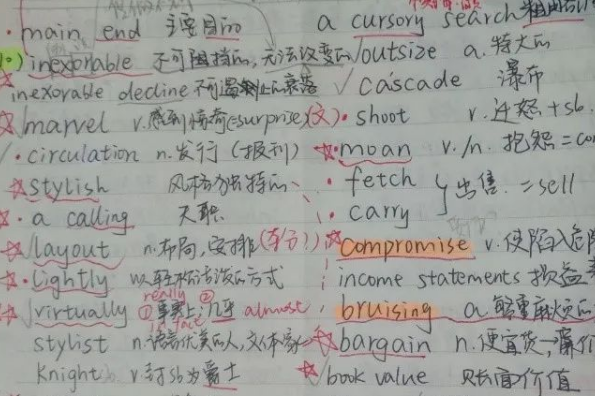 main end 主要目的
inexorable 不可阻挡的, 无法改变的
inexorable decline 不可遏制止的衰落
marvel v.感到惊奇(=surprise)(文)
circulation n.发行(报刊)
stylish 风格独特的
a calling 天职
layout n.布局,安排
Lightly 以轻松的方式
really ②
virtually ①事实上;几乎 almost
in fact
stylist n.语言优美的人,文体家
Knight v.封sb为爵士
a cursory search
outsize a.特大的
cascade 瀑布
shoot v.迁怒+sb.
moan v./n. 抱怨
fetch
出售 =sell
carry
compromise v.使陷入危险
income statements 损益
bruising a.
bargain n.便宜货→廉价
book value 账面价值